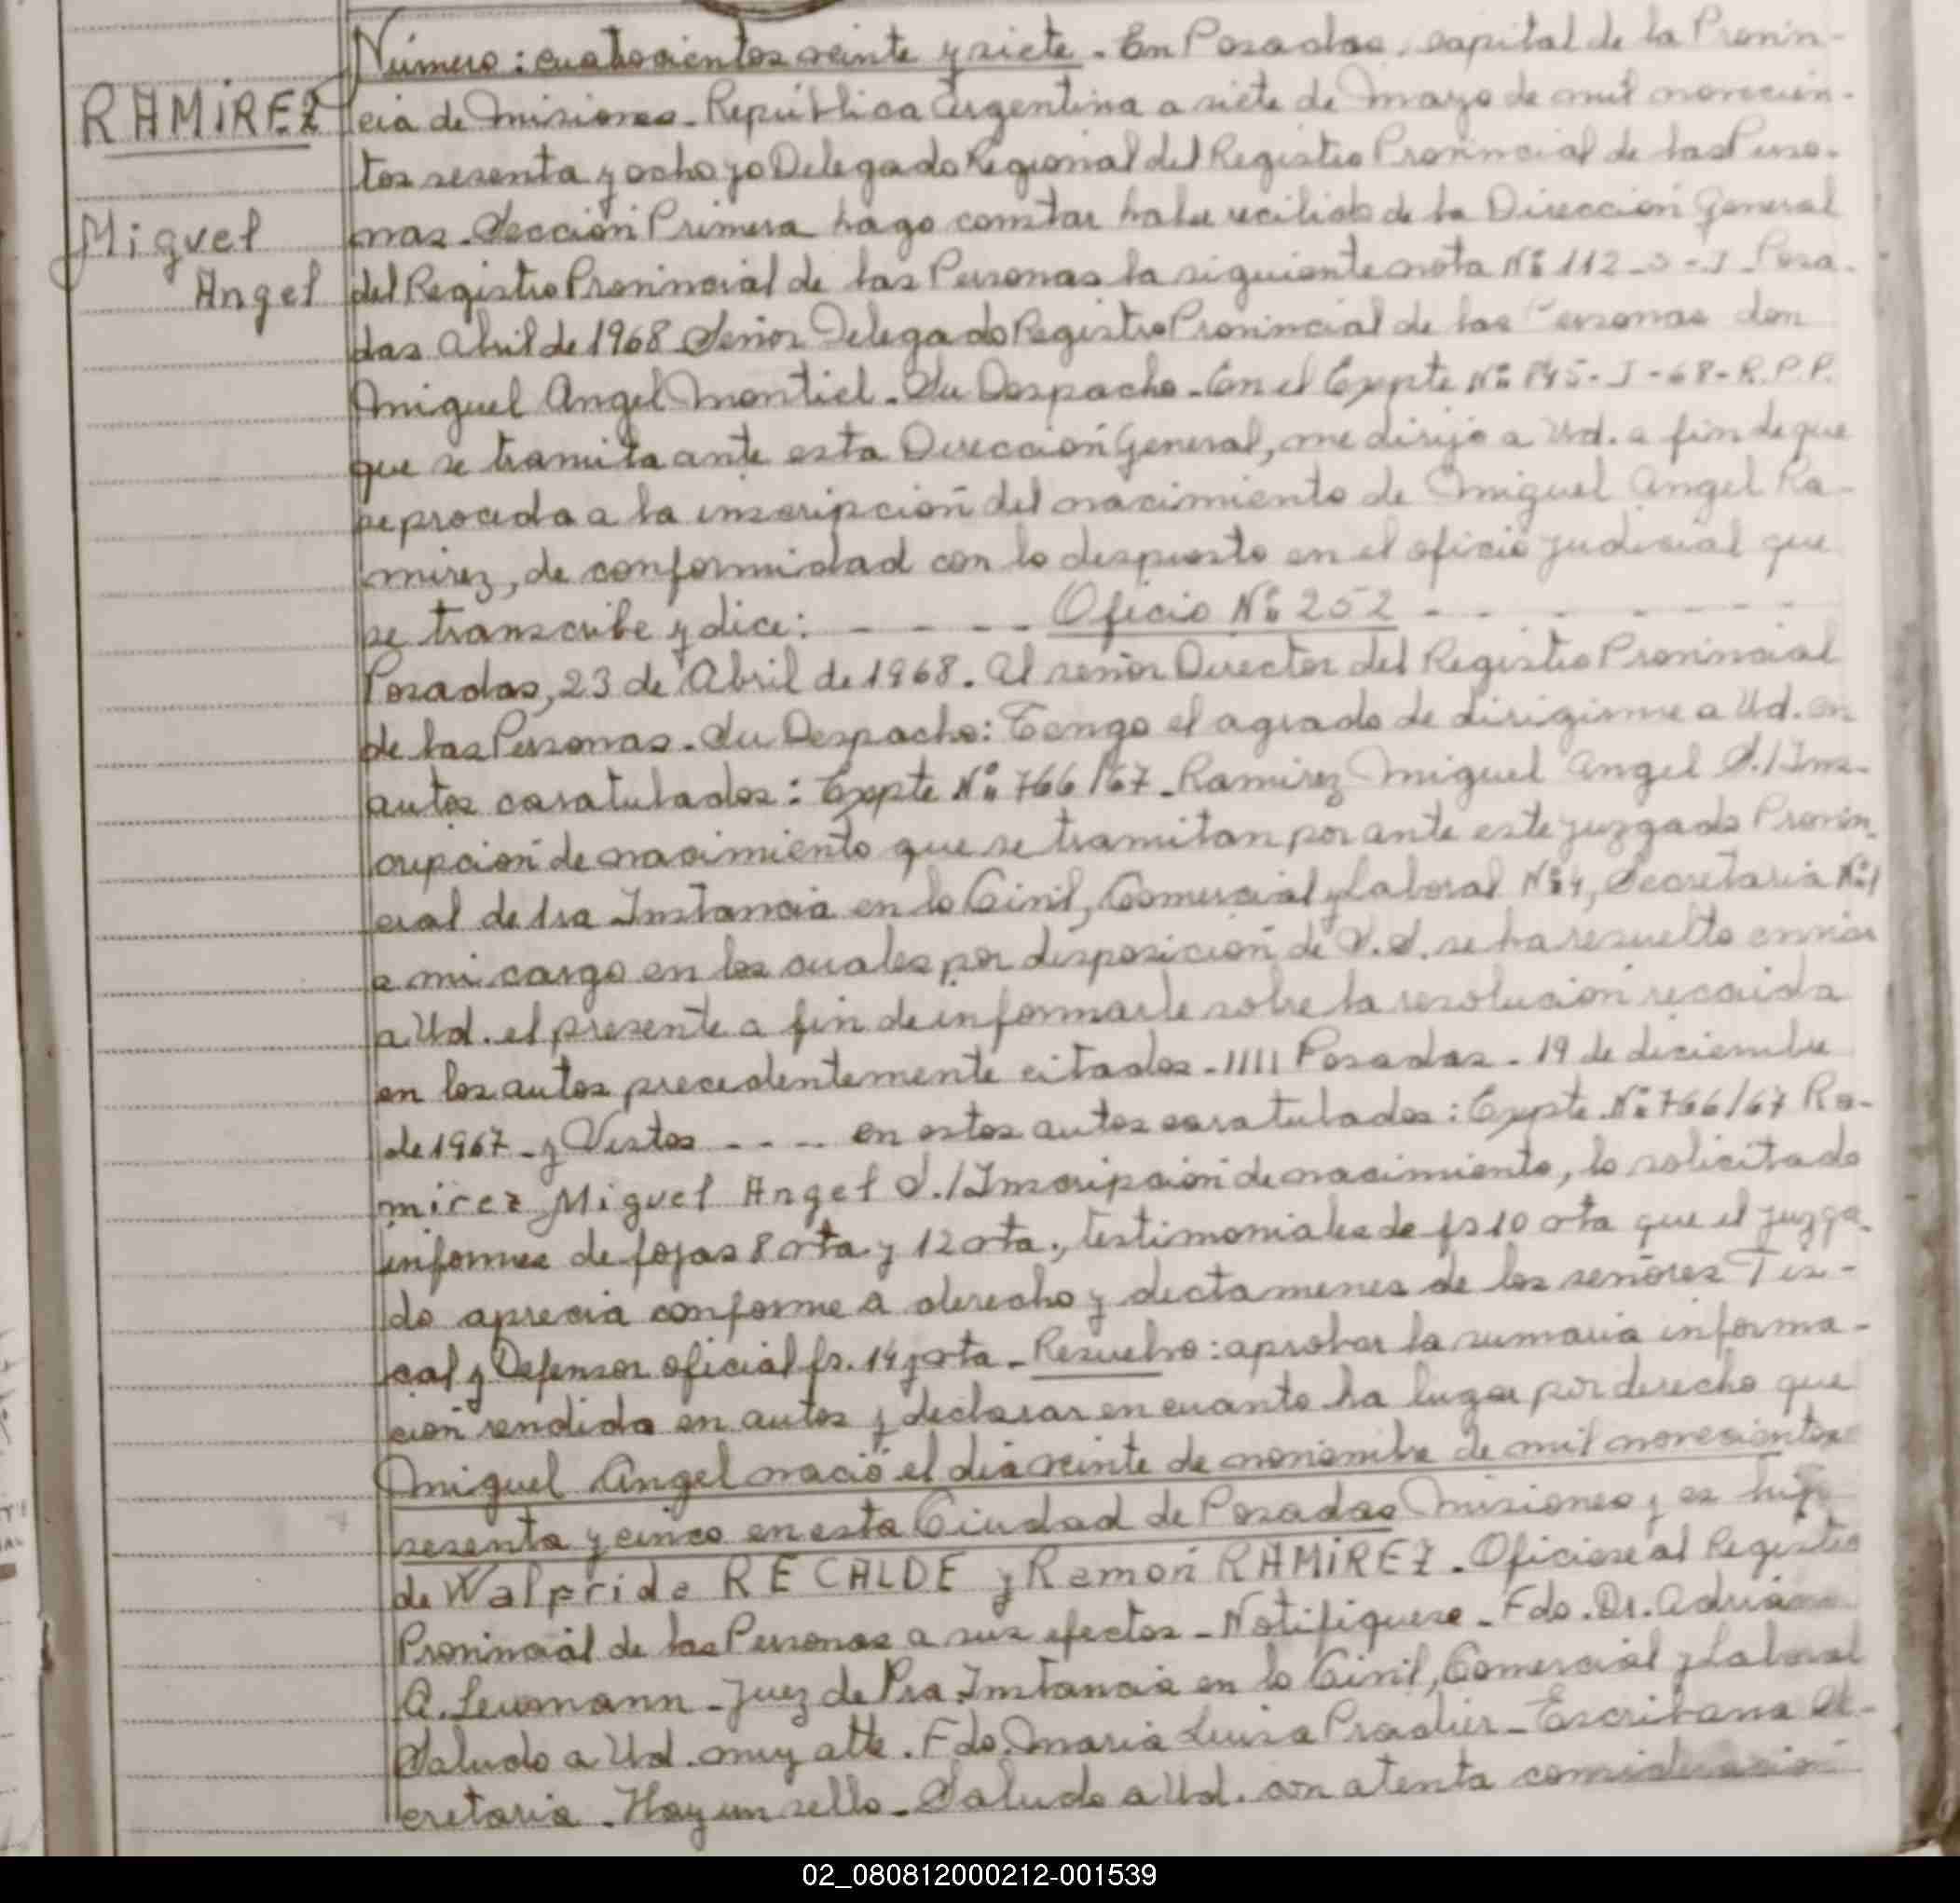 RAMIREZ
Miguel
Angel
Número: cuatrocientos veinte y siete - En Posadas, capital de la Provin-
cia de Misiones - República Argentina a siete de Mayo de mil novecien-
tos sesenta y ocho yo Delegado Regional del Registro Provincial de las Perso-
nas - Sección Primera hago constar haber recibido de la Dirección General
del Registro Provincial de las Personas la siguiente nota Nº 112 - Posa-
das Abril de 1968 Señor Delegado Registro Provincial de las Personas don
Miguel Angel Montiel - Su Despacho - En el Expte Nº 845-J-68-R.P.P.
que se tramita ante esta Dirección General, me dirijo a Ud. a fin de que
se proceda a la inscripción del nacimiento de Miguel Angel Ra-
mirez, de conformidad con lo despuesto en el oficio judicial que
se transcribe y dice: - - - - Oficio Nº 252 - - - - - -
Posadas, 23 de Abril de 1968. Al señor Director del Registro Provincial
de las Personas - Su Despacho: Tengo el agrado de dirigirme a Ud. en
autos caratulados: Expte Nº 766/67 - Ramirez Miguel Angel S./Ins-
cripción de nacimiento que se tramitan por ante este juzgado Provin-
cial de 1ra Instancia en lo Civil, Comercial y Laboral Nº 4, Secretaria Nº 1
a mi cargo en los cuales por disposición de V.S. se ha resuelto enviar
a Ud. el presente a fin de informarle sobre la resolución recaida
en los autos precedentemente citados - //// Posadas - 19 de diciembre
de 1967 - y Vistos - - - - en estos autos caratulados: Expte Nº 766/67 Ra-
mirez Miguel Angel S./Inscripción de nacimiento, lo solicitado
informes de fojas 8 vta y 12 vta., testimoniales de fs 10 vta que el juzga-
do aprecia conforme a derecho y dictamenes de los señores Fis-
cal y Defensor oficial fs. 14 y vta - Resuelvo: aprobar la sumaria informa-
ción rendida en autos y declarar en cuanto ha lugar por derecho que
Miguel Angel nació el dia veinte de noviembre de mil novecientos
sesenta y cinco en esta Ciudad de Posadas Misiones y es hijo
de Walprida RECALDE y Ramón RAMIREZ - Oficiese al Registro
Provincial de las Personas a sus efectos - Notifiquese - Fdo. Dr. Adrián
A. Leumann - Juez de Pra Instancia en lo Civil, Comercial y Laboral
Saludo a Ud. muy atte. Fdo. Maria Luisa Pradier - Escribana Se-
cretaria - Hay un sello - Saludo a Ud. con atenta consideración
02_080812000212-001539